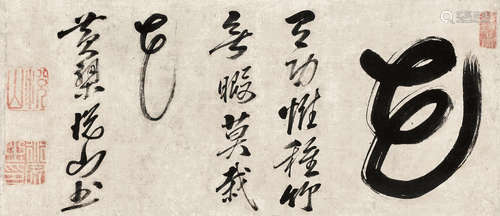 花
有功惟種竹
無暇莫栽
花
黄檗悦山書